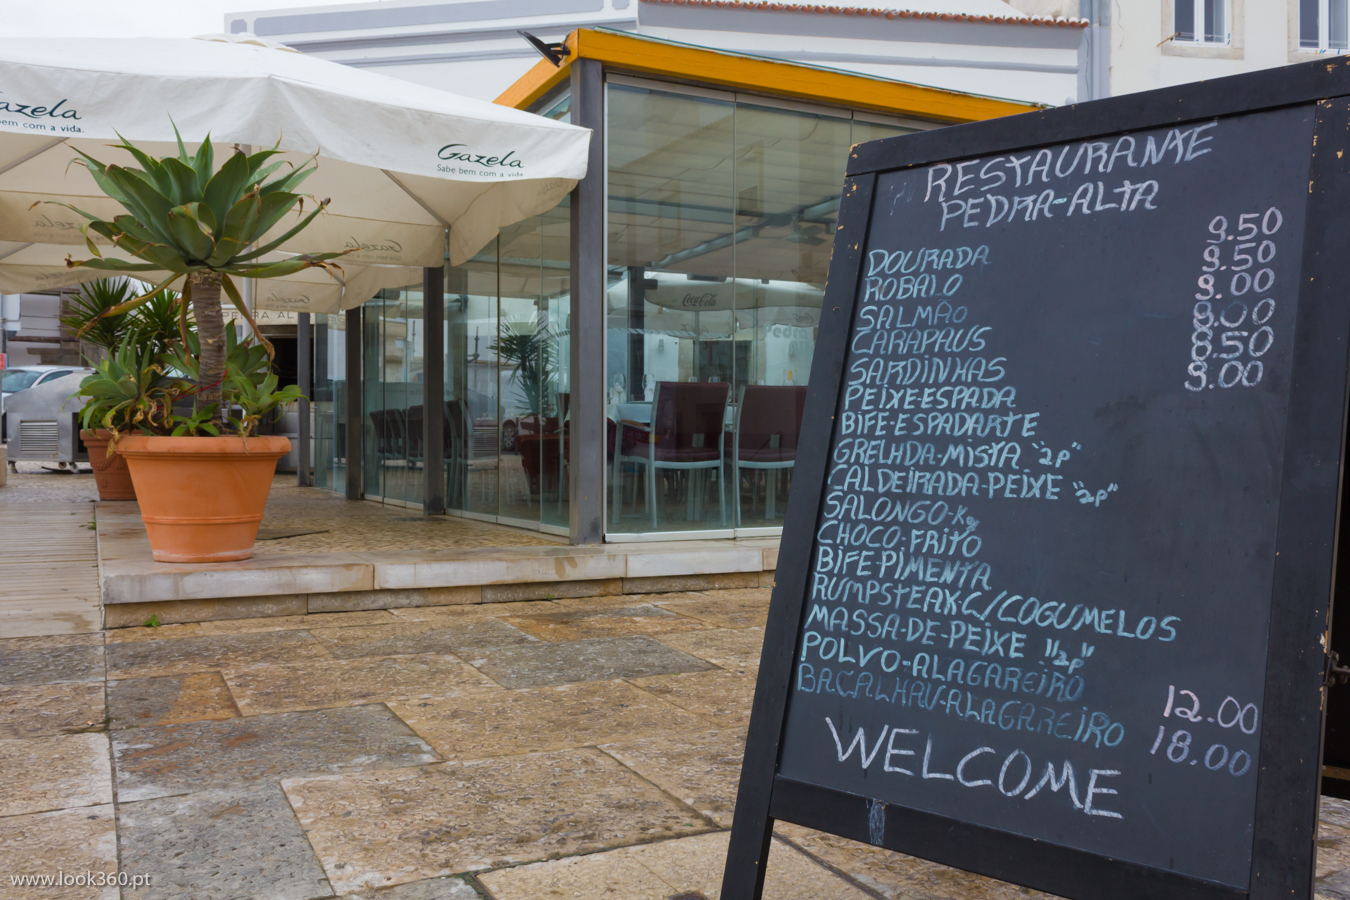 Gazela
Sabe bem com a vida.
Gazela
bem com a vida.
Coca-Cola
PEDRA AL
RESTAURANTE
PEDRA-ALTA
DOURADA 9.50
ROBALO 9.50
SALMÃO 9.00
CARAPAUS 8.00
SARDINHAS 8.50
PEIXE-ESPADA 9.00
BIFE-ESPADARTE
GRELHDA-MISTA "2P"
CALDEIRADA-PEIXE "2P"
SALONGO-Kg
CHOCO-FRITO
BIFE-PIMENTA
RUMPSTEAK-C/COGUMELOS
MASSA-DE-PEIXE "2P"
POLVO-ALAGAREIRO 12.00
BACALHAU-ALAGAREIRO 18.00
WELCOME
www.look360.pt